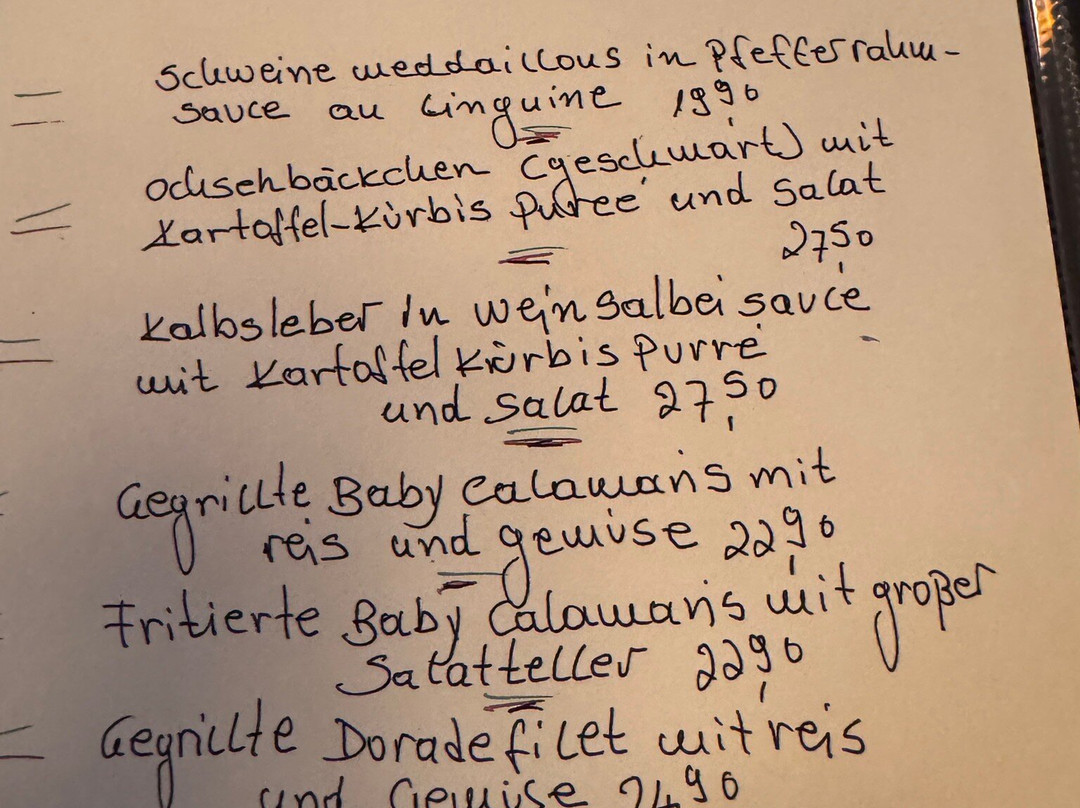 Schweine meddaillous in Pfefferrahm-
sauce au Linguine 19,90
ochsenbäckchen (geschmart) mit
Kartoffel-Kürbis Pureé und Salat
27,50
Kalbsleber in wein Salbei sauce
mit Kartoffel Kürbis Purré
und Salat 27,50
Gegrillte Baby Calamaris mit
reis und gemüse 22,90
Fritierte Baby Calamaris mit großer
Salatteller 22,90
Gegrillte Doradefilet mit reis
und Gemüse 24,90